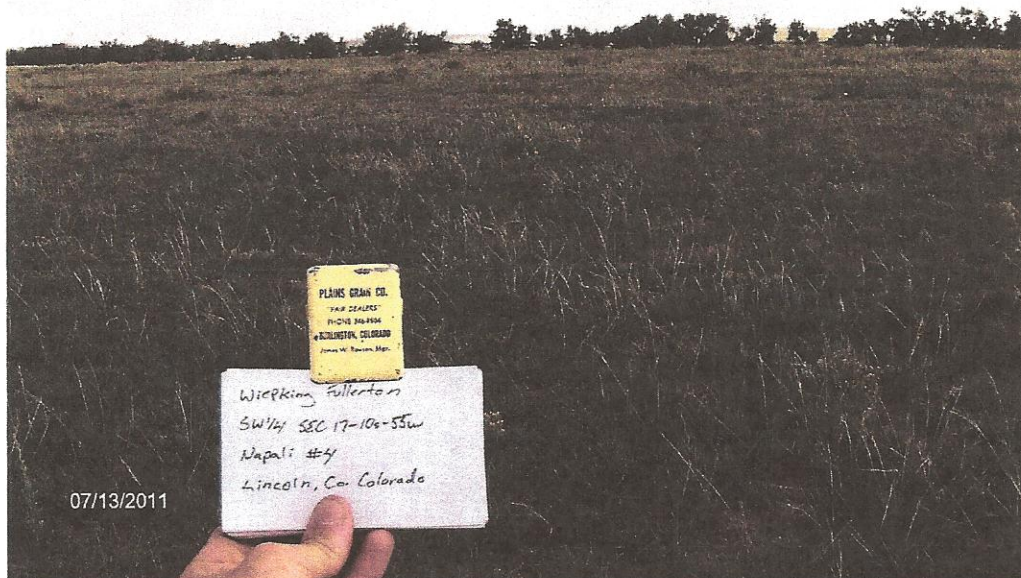 PLAINS GRAIN CO.
"FAIR DEALERS"
PHONE
BURLINGTON, COLORADO
James W. Mgr.
Wiepking Fullerton
SW 1/4 SEC 17-10s-55w
Napali #4
Lincoln, Co. Colorado
07/13/2011